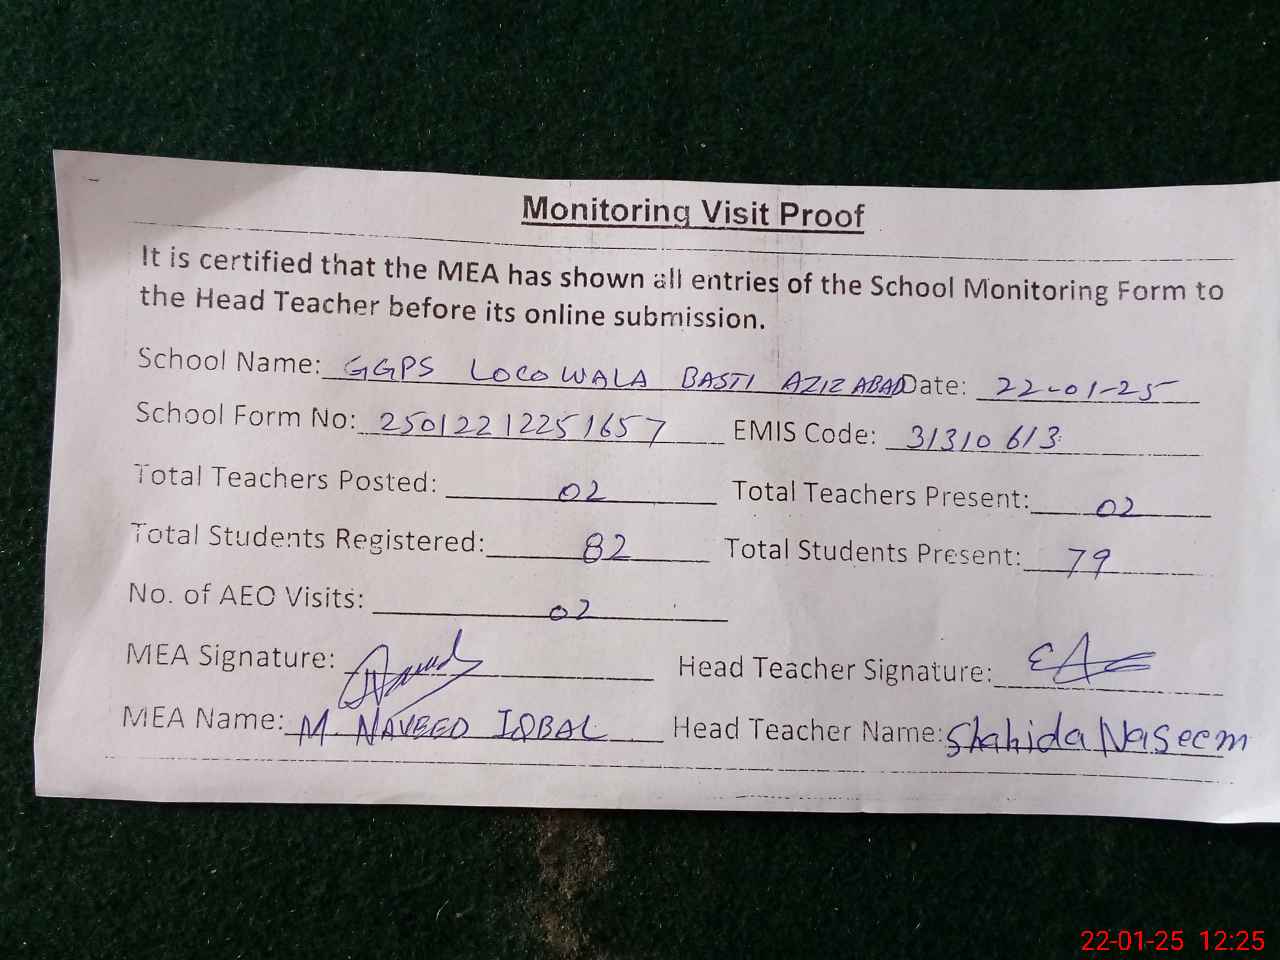 Monitoring Visit Proof
It is certified that the MEA has shown all entries of the School Monitoring Form to
the Head Teacher before its online submission.
School Name: GGPS LOCOWALA BASTI AZIZ ABAD Date: 22-01-25
School Form No: 25012212251657 EMIS Code: 31310613
Total Teachers Posted: 02 Total Teachers Present: 02
Total Students Registered: 82 Total Students Present: 79
No. of AEO Visits: 02
MEA Signature: Head Teacher Signature:
MEA Name: M. NAVEED IQBAL Head Teacher Name: Shahida Naseem
22-01-25 12:25